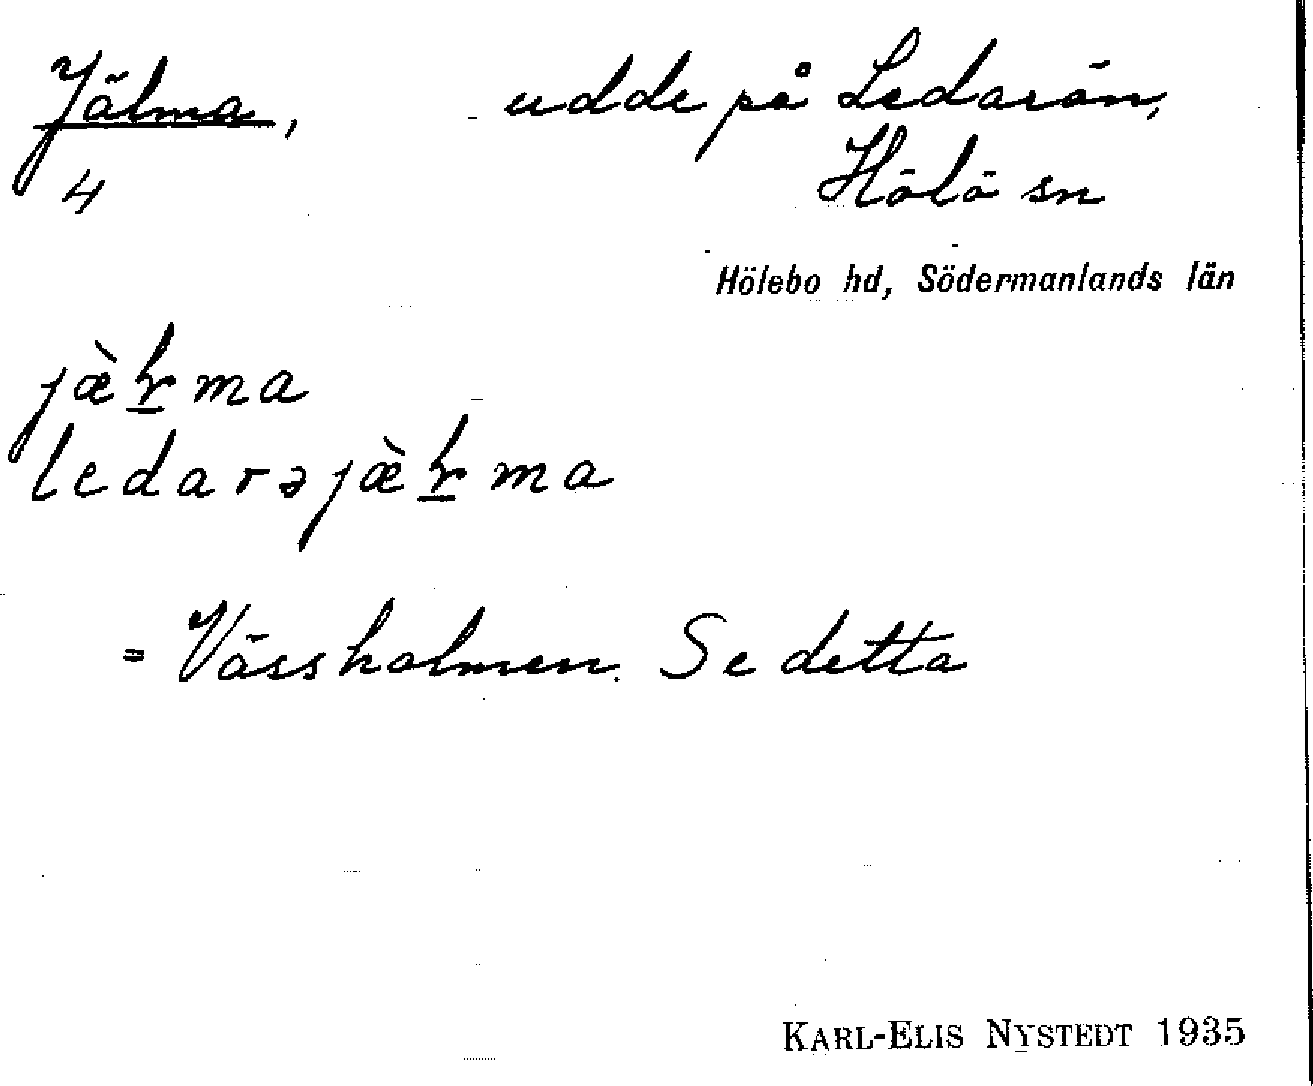 Jälma, udde på Ledarön,
4 Hölö sn
Hölebo hd, Södermanlands län
jæ̀ɽma
ledarəjæ̀ɽma
= Vässholmen. Se detta
KARL-ELIS NYSTEDT 1935